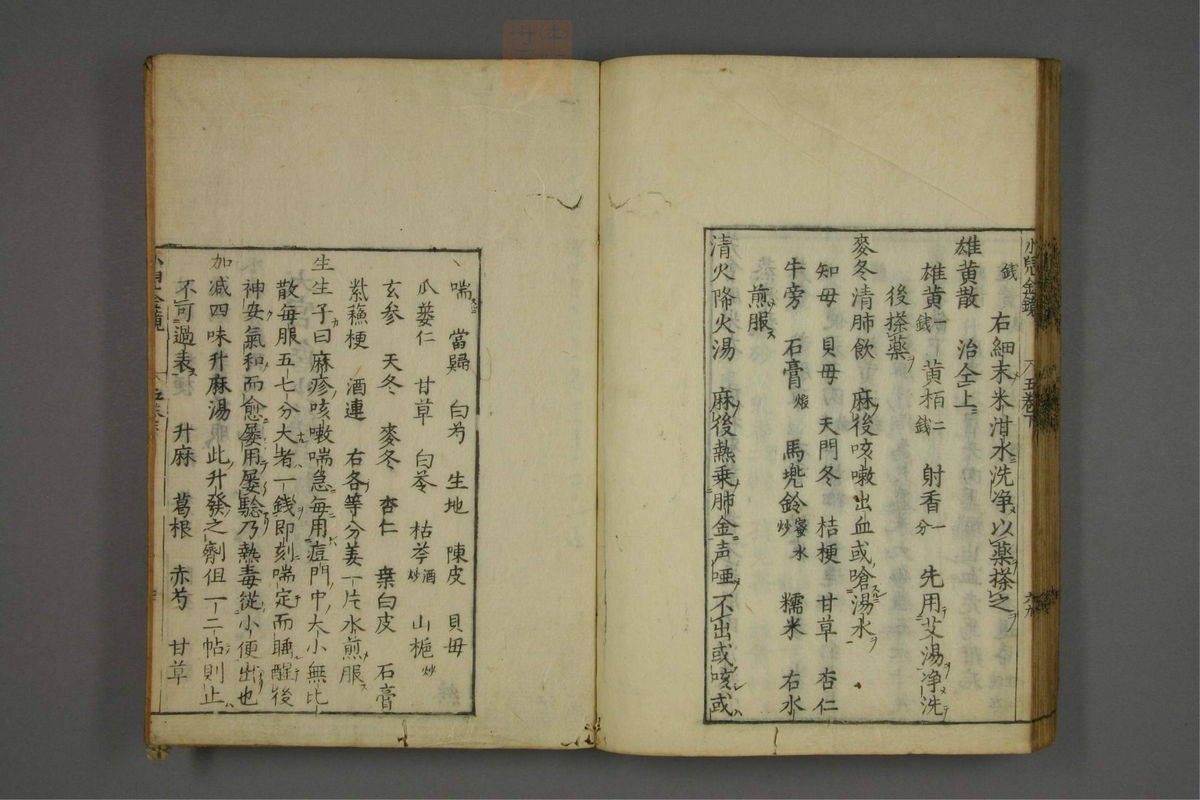 小兒金鏡 五卷下
錢 右細末米泔水洗净以藥搽之
雄黃散 治仝上
雄黃一錢 黃栢二錢 射香一分 先用艾湯净洗
後搽藥
麥冬清肺飲 麻後咳嗽出血或嗆湯水
知毋 貝毋 天門冬 桔梗 甘草 杏仁
牛旁 石膏煅 馬兠鈴蜜水炒 糯米 右水
煎服
清火降火湯 麻後熱乗肺金声哑不出或咳或
喘 當歸 白芍 生地 陳皮 貝毋
瓜蔞仁 甘草 白苓 枯芩酒炒 山梔炒
玄参 天冬 麥冬 杏仁 桒白皮 石膏
紫蘓梗 酒連 右各等分姜一片水煎服
生生子曰麻疹咳嗽喘急每用痘門中大小無比
散每服五七分大者一錢即刻喘定而睡醒後
神安氣和而愈屢用屢驗乃熱毒從小便出也
加减四味升麻湯 此升發之劑但一二帖則止
不可過表 升麻 葛根 赤芍 甘草